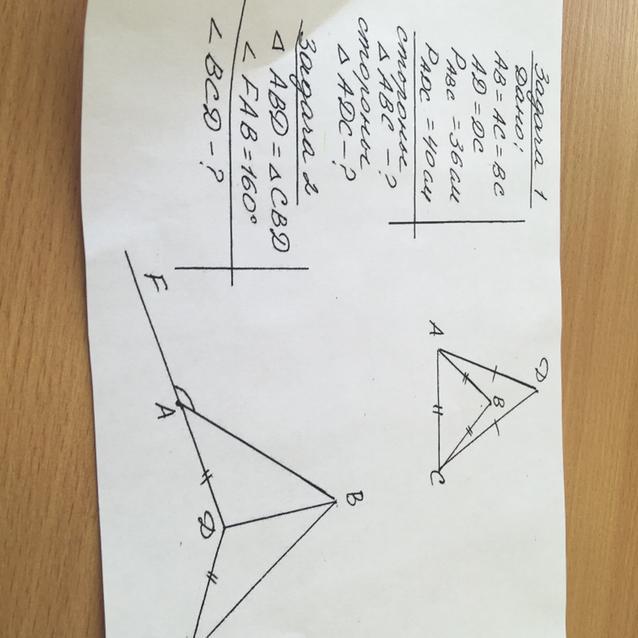 Задача 1
Дано:
AB = AC = BC
AD = DC
P ABC = 36 см
P ADC = 40 см
стороны
Δ ABC - ?
стороны
Δ ADC - ?
D
A
B
C
Задача 2
Δ ABD = Δ CBD
< FAB = 160°
< BCD - ?
F
A
B
D